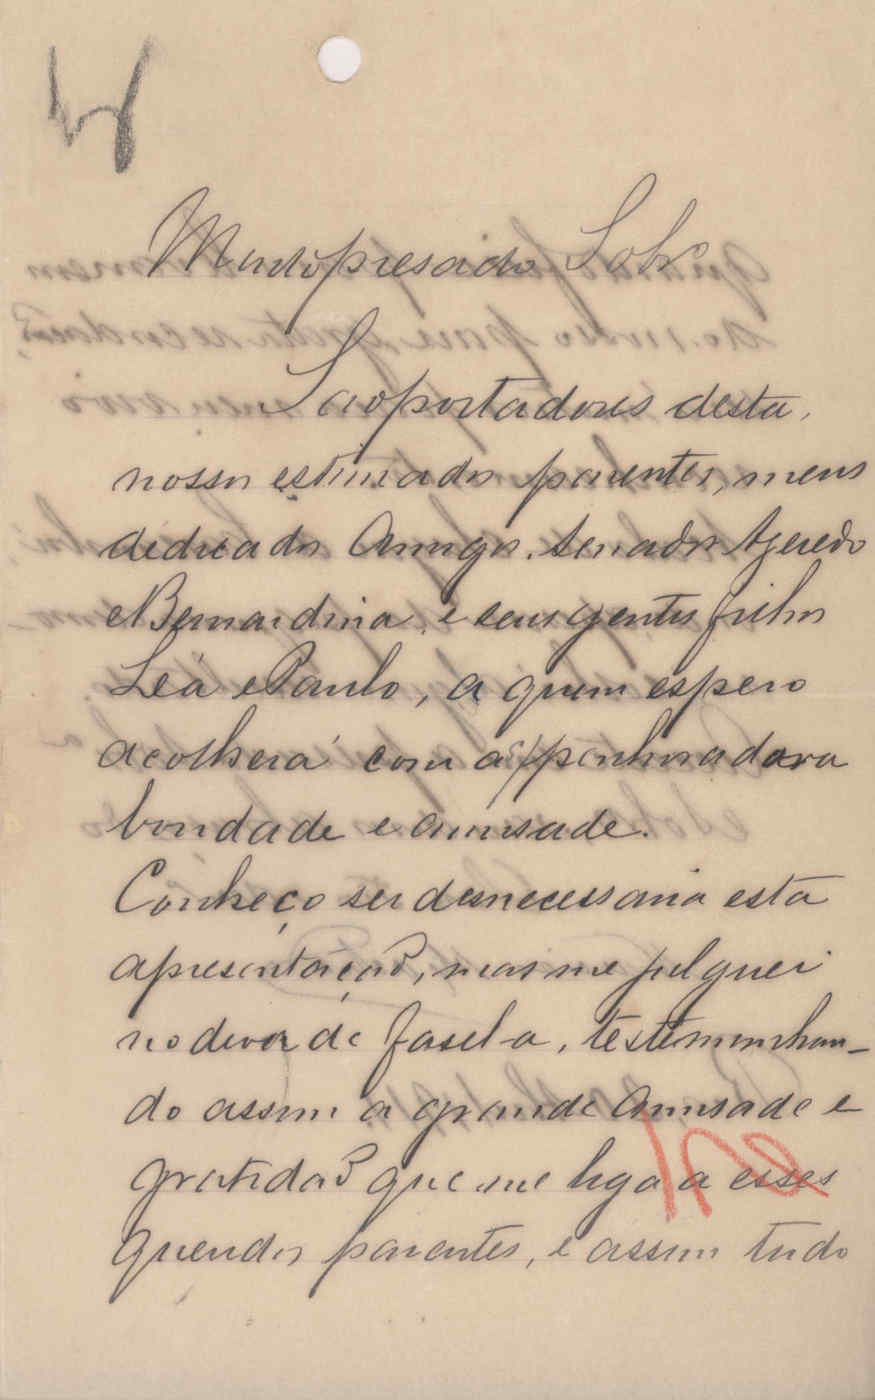 Muito presado Sobrº
São portadores desta,
nossos estimados parentes, meus
dedicados Amigos. Senador Azeredo
e Bernardina, e seus gentis filhos
Léa e Paulo, a quem espero
acolherá com a penhoradora
bondade e amisade.
Conheço ser desnecessaria esta
apresentação, mas me julguei
no dever de fasel-a, testemunhan-
do assim a grande amisade e
gratidão que me liga a esses
queridos parentes, e assim tudo